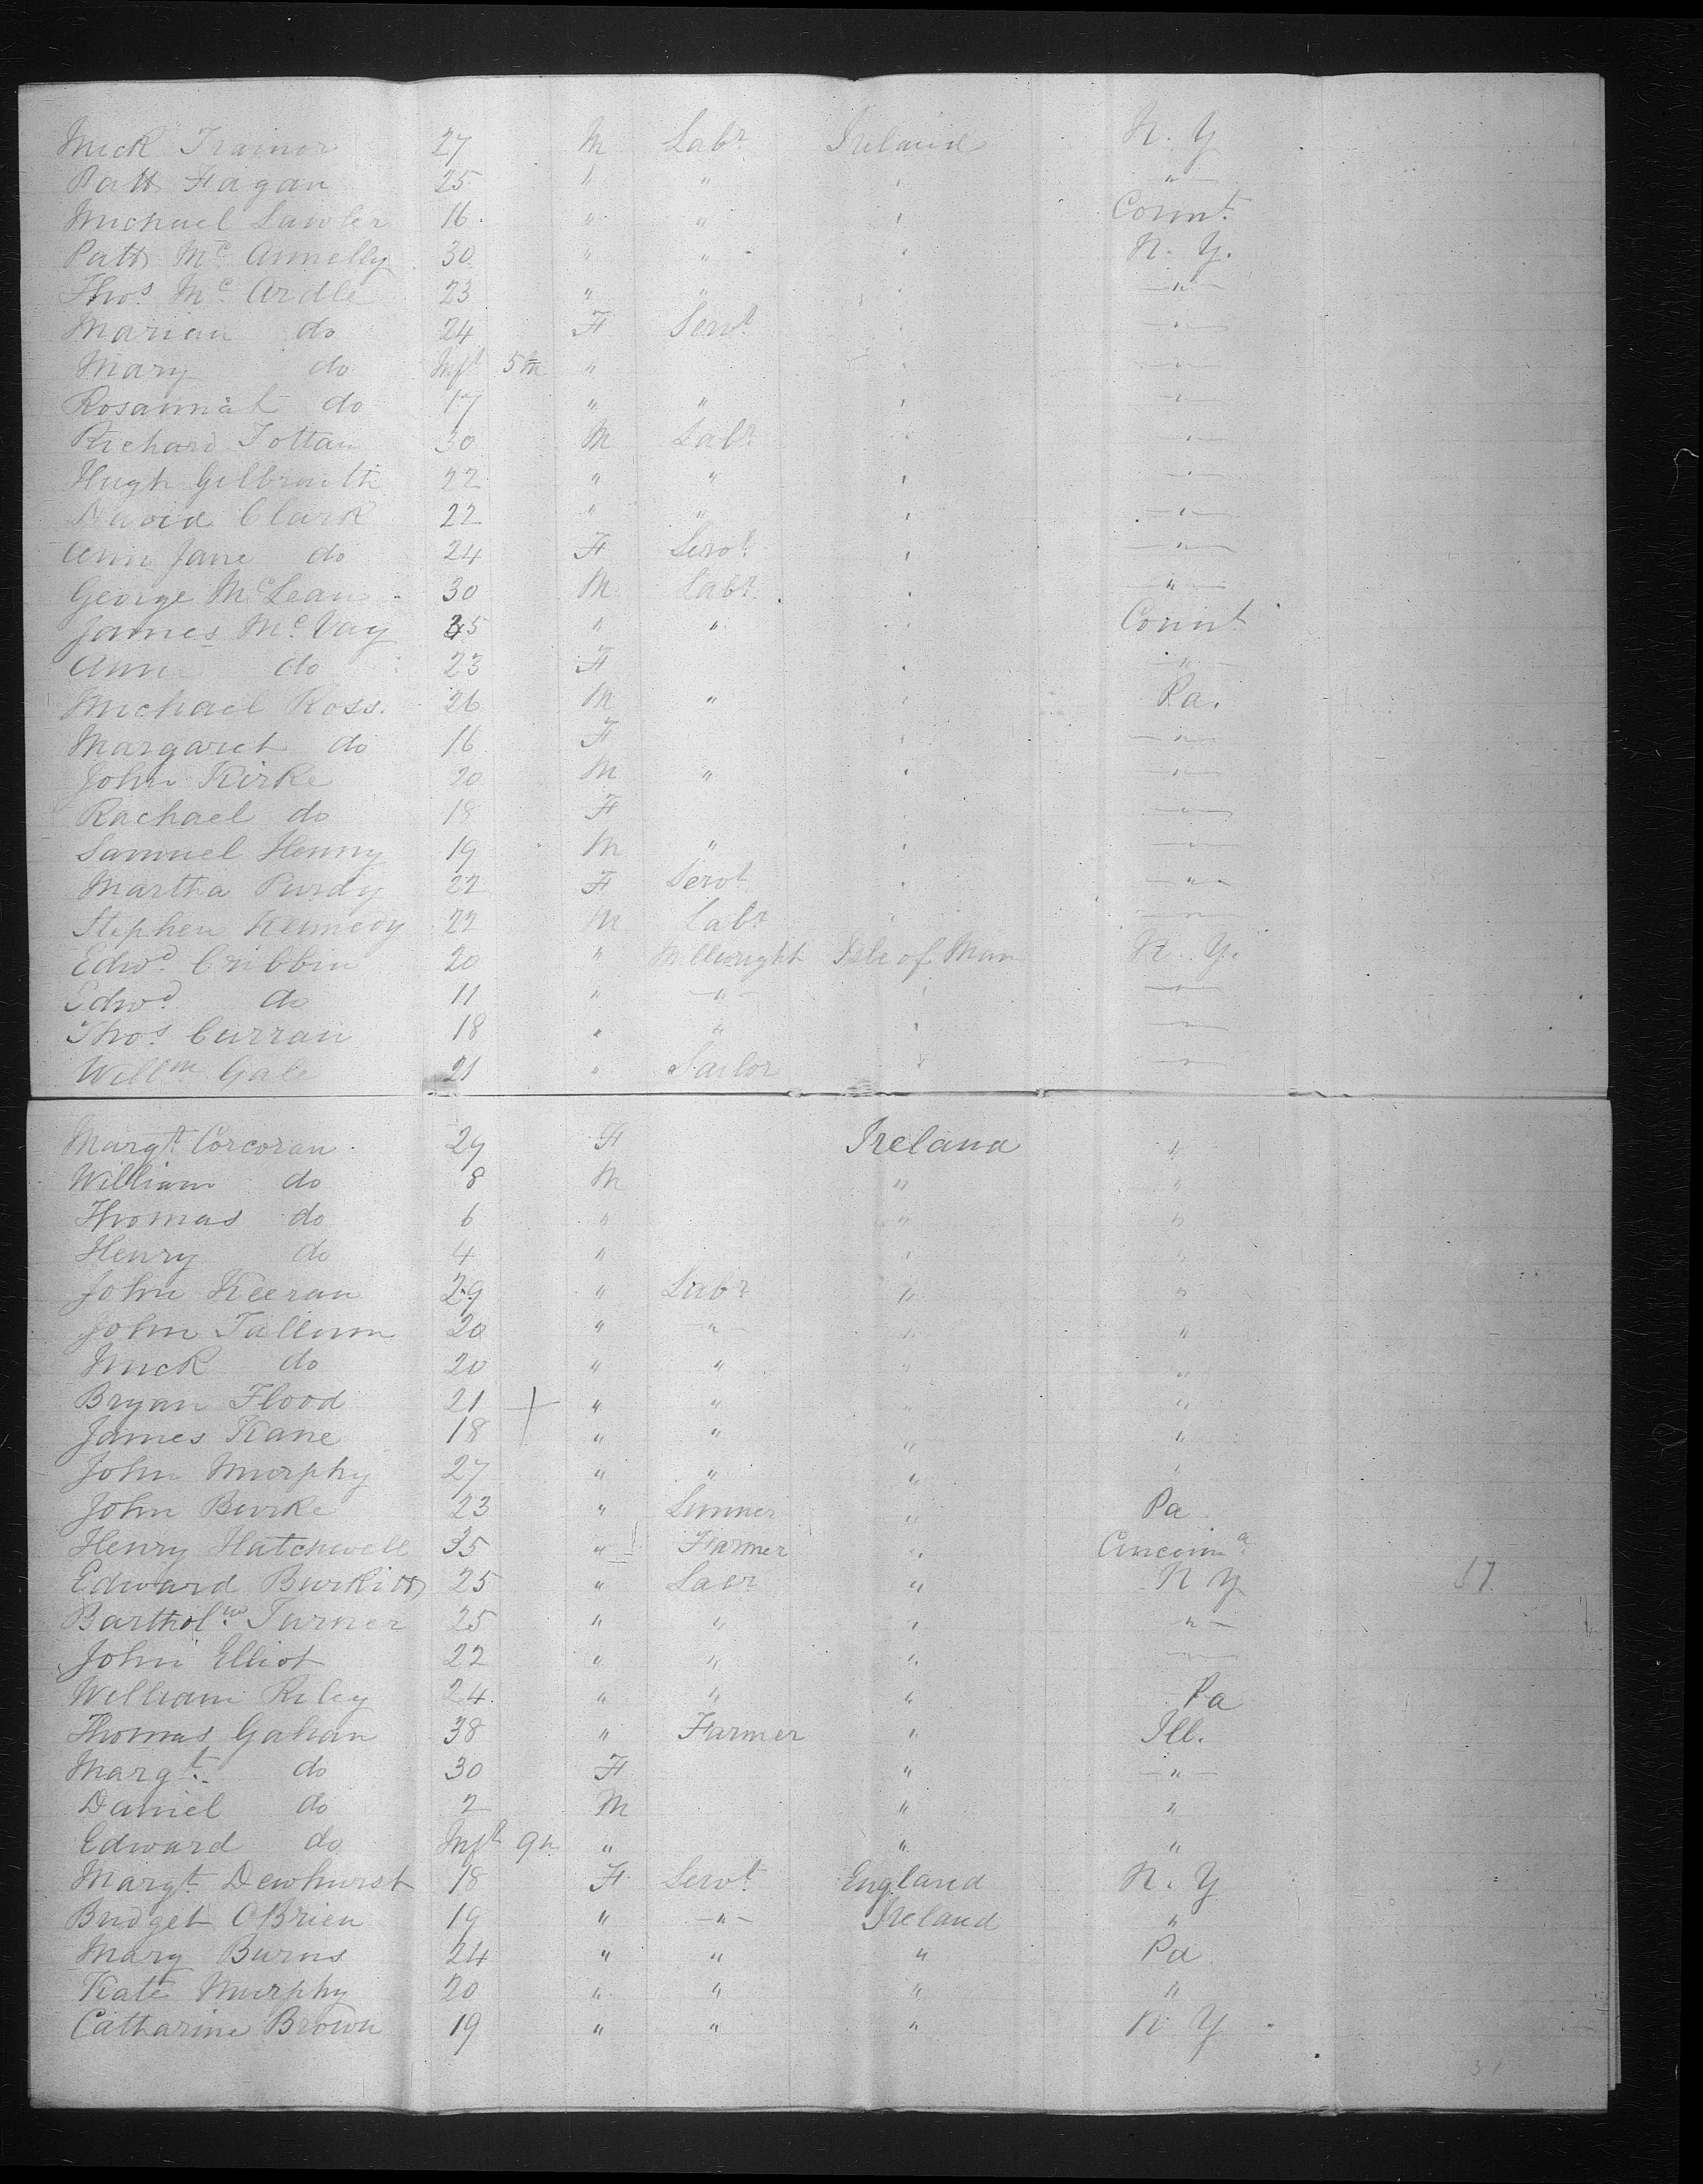 Mick Trainor 27 M Labr Ireland N. Y
Patk Fagan 25 " " " "
Michael Lawler 16 " " " Connt.
Patk Mc Annelly 30 " " " N. Y.
Thos Mc Ardle 23 " " " "
Marian do 24 F Servt " "
Mary do Inft 5m " " "
Rosannah do 17 " " " "
Richard Tottan 30 M Labr " "
Hugh Gilbraith 22 " " " "
David Clark 22 " " " "
Ann Jane do 24 F Servt " "
George McLean 30 M Labr " "
James Mc Vay 25 " " " Connt
Ann do 23 F " "
Michael Ross. 26 M " " Pa.
Margaret do 16 F " "
John Kirke 20 M " " "
Rachael do 18 F " "
Samuel Henry 19 M " " "
Martha Purdy 22 F Servt " "
Stephen Kennedy 22 M Labr " "
Edwd. Cribbin 20 " Millwright Isle of Man N. Y.
Edwd do 11 " " " "
Thos Curran 18 " " " "
Willm Gale 21 " Sailor " "
Margt. Corcoran 29 F Ireland "
William do 8 M " "
Thomas do 6 " " "
Henry do 4 " " "
John Keeran 29 " Labr " "
John Tallinn 20 " " " "
Mick do 20 " " " "
Bryan Flood 21 + " " " "
James Kane 18 " " " "
John Murphy 27 " " " "
John Burke 23 " " Pa
Henry Hatchwell 35 " Farmer " Cincinna
Edward Burkitt 25 " Labr " N Y 57
Bartholw Turner 25 " " " "
John Elliot 22 " " " "
William Riley 24. " " " Pa
Thomas Gahan 38 " Farmer " Ill.
Margt. do 30 F " "
Daniel do 2 M " "
Edward do Inft 9m " " "
Margt. Dewhurst 18 F Servt England N. Y
Bridget OBrien 19 " " Ireland "
Mary Burns 24 " " " Pa
Kate Murphy 20 " " " "
Catharine Brown 19 " " " N Y